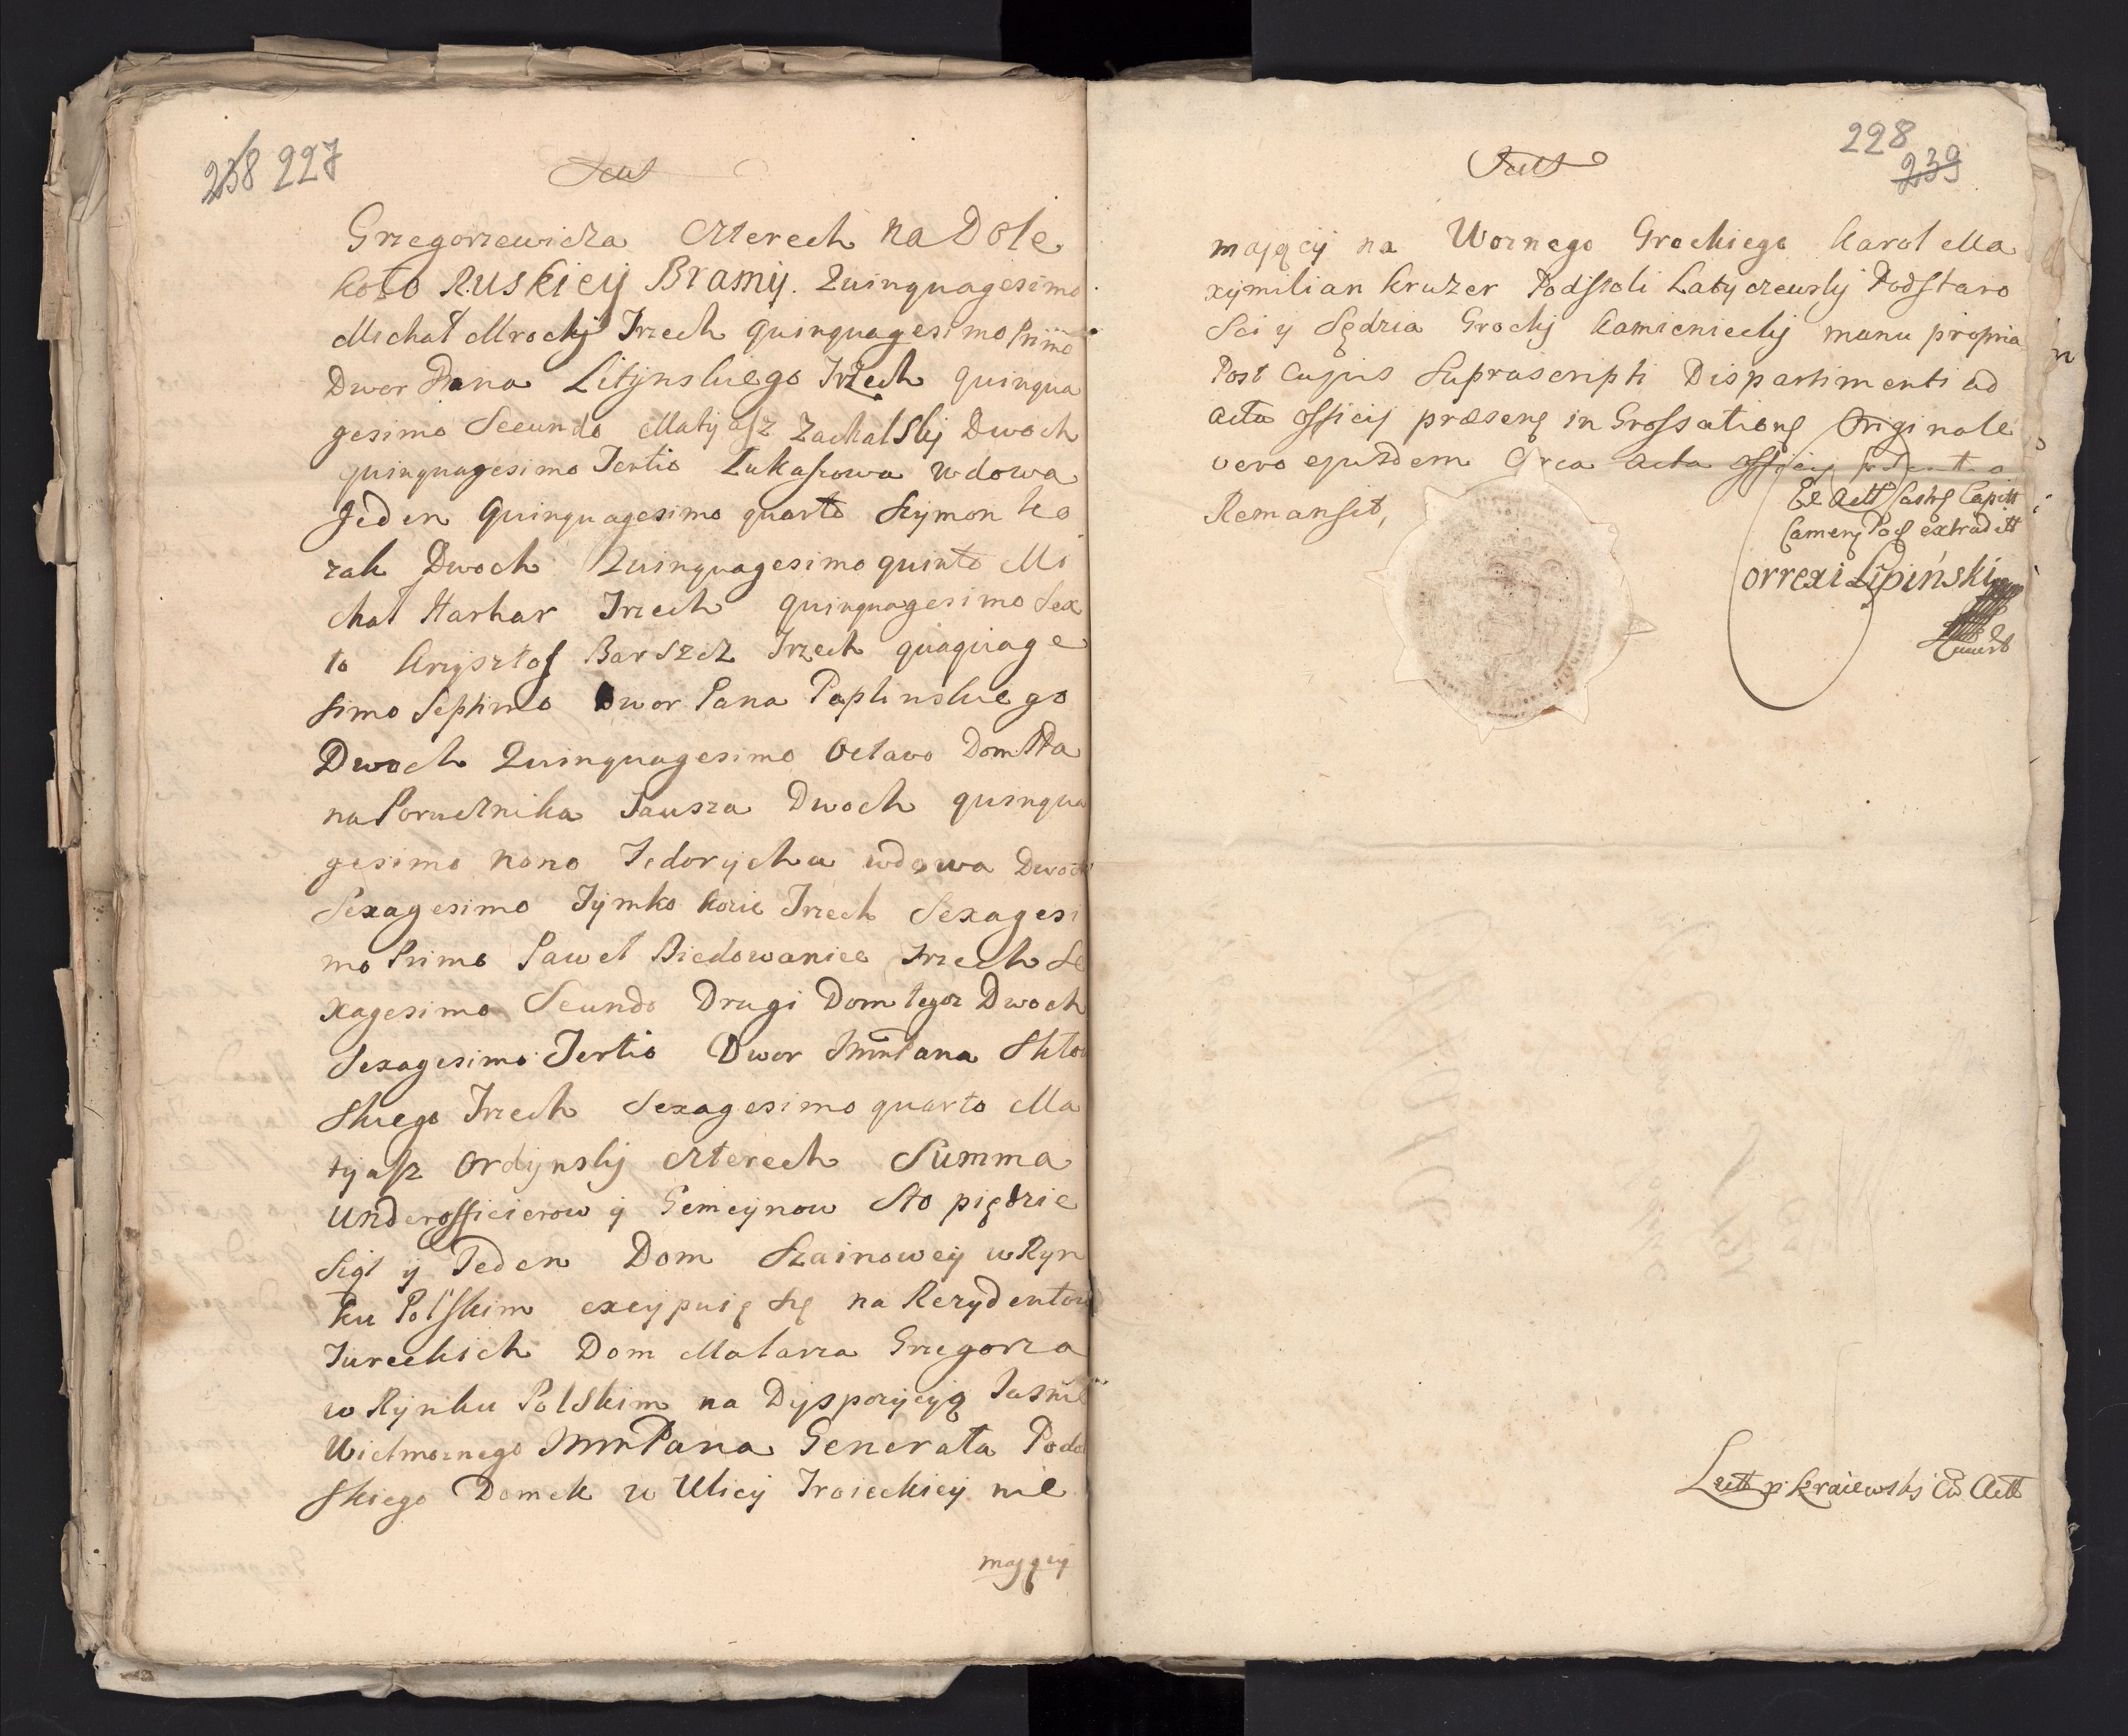 238 227
Grzegorzewicza Czterech na Dole
koło Ruskiey Bramy. Quinquagesimo
Michał Mrocky Trzech quinquagesimo Primo
Dwor Pana Litynskiego Trzech quinqua
gesimo Secundo Matyasz Zachalsky Dwoch
quinquagesimo Tertio Łukaszowa wdowa
Jeden Quinquagesimo quarto Szymon Ko
zak Dwoch Quinquagesimo quinto Mi
chał Harhar Trzech quinquagesimo Sex
to Krzysztof Barszcz Trzech quaquage
simo Septimo Dwor Pana Paplinskiego
Dwoch Quinquagesimo Octavo Dom Pa
na Porucznika Jausza Dwoch quinqua
gesimo nono Fedorycha wdowa Dwoch
Sexagesimo Tymko Kozie Trzech Sexagesi
mo Primo Paweł Biedowaniec Trzech Se
xagesimo Secundo Drugi Dom tegoz Dwoch
Sexagesimo Tertio Dwor ImmPana
Skiego Trzech Sexagesimo quarto Ma
tyasz Ordynsky czterech Summa
Underofficierow y Gemeynow Sto pięćdzie
siąt y Jeden Dom Szainowey w Ryn
ku Polskim excypuię się na Rezydentow
Tureckich Dom Malarza Grzegorza
w Rynku Polskim na Dyspozycyą Jasnie
Wielmoznego ImmPana Generała Podol
skiego Domek w Ulicy Troieckiey nie
maiący
228
239
maiący na Woznego Grockiego Karol Ma
xymilian Kruzer Podstoli Latyczewsky Podstaro
sci y Sędzia Grocky Kamieniecky manu propria
Post Cujus Suprascripti Dispartimenti ad
acta officij præsens in Grossationg Originale
vero ejusdem Circa acta officij
Remansit,
Ex Actt Castrg Capitt
Cameng Pod extraditt
Correxi Lipiński
Lectt p Kraiewski Cū Actt